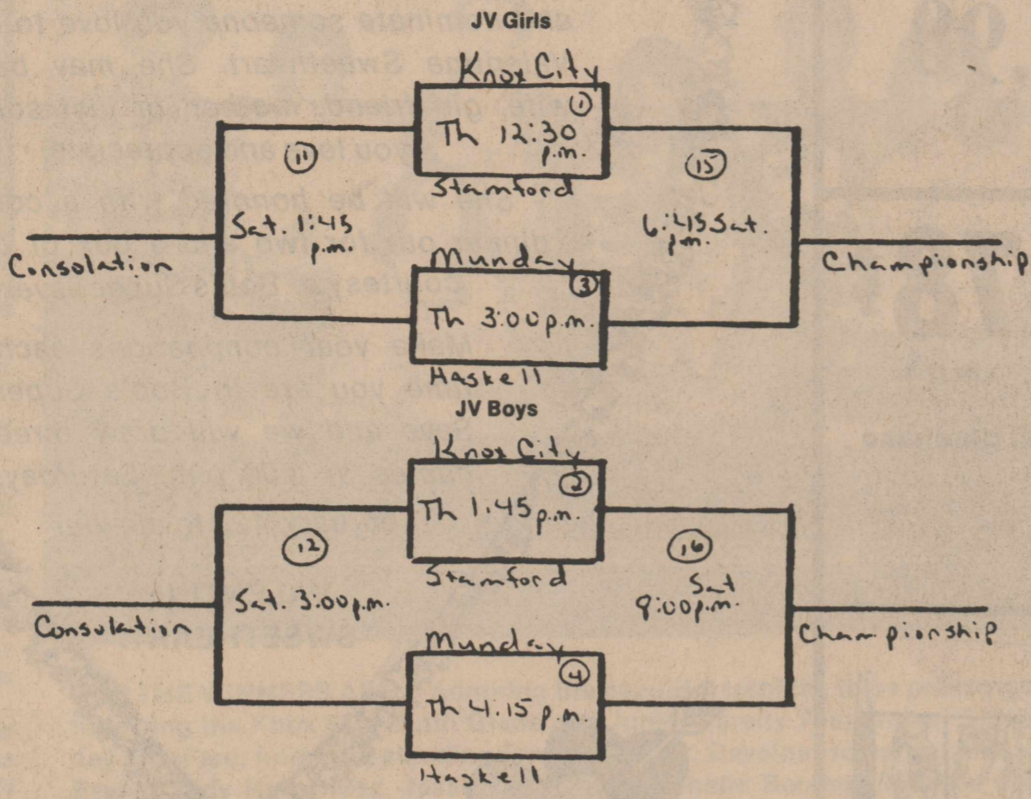 JV Girls
Knox City
1
Th 12:30
p.m.
Stamford
11
15
Sat. 1:45
p.m.
6:45 Sat.
p.m.
Consolation
Championship
Munday
3
Th 3:00 p.m.
Haskell
JV Boys
Knox City
2
Th 1:45 p.m.
Stamford
12
16
Sat. 3:00 p.m.
Sat
8:00 p.m.
Consolation
Championship
Munday
4
Th 4:15 p.m.
Haskell